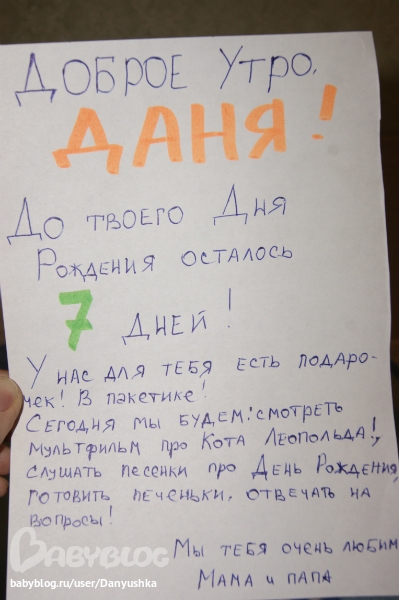 Доброе Утро,
ДАНЯ!
До твоего Дня
Рождения осталось
7 дней!
У нас для тебя есть подаро-
чек! В пакетике!
Сегодня мы будем: смотреть
мультфильм про Кота Леопольда!,
слушать песенки про День Рождения,
готовить печеньки, отвечать на
вопросы!
Мы тебя очень любим
Мама и папа
BABYBLOG
babyblog.ru/user/Danyushka